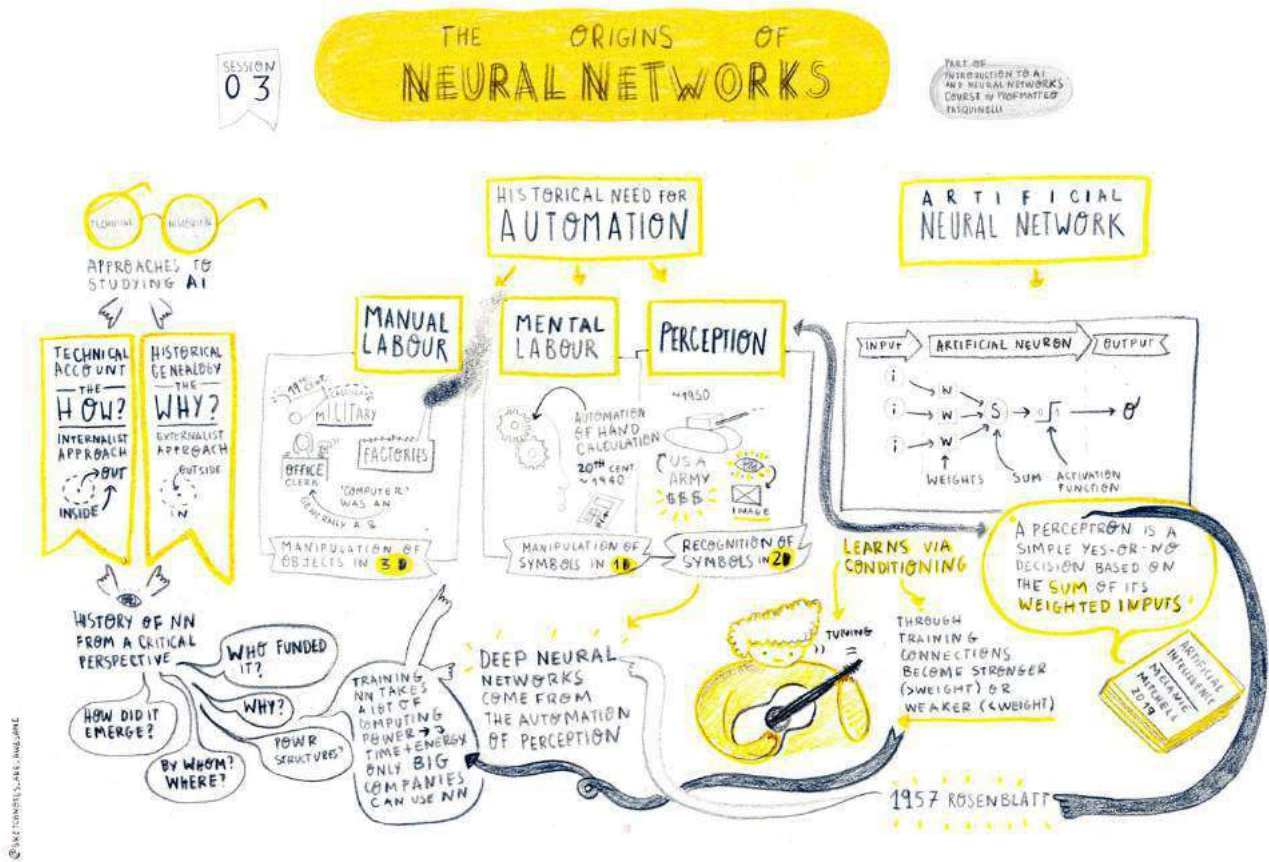 SESSION
03
THE ORIGINS OF
NEURAL NETWORKS
PART OF
INTRODUCTION TO AI
AND NEURAL NETWORKS
COURSE BY PROF MATTEO
PASQUINELLI
TECHNICAL
HISTORICAL
APPROACHES TO
STUDYING AI
TECHNICAL
ACCOUNT
THE
HOW?
INTERNALIST
APPROACH
OUT
INSIDE
HISTORICAL
GENEALOGY
THE
WHY?
EXTERNALIST
APPROACH
OUTSIDE
IN
HISTORY OF NN
FROM A CRITICAL
PERSPECTIVE
WHO FUNDED
IT?
WHY?
HOW DID IT
EMERGE?
BY WHOM?
WHERE?
POWR
STRUCTURES?
HISTORICAL NEED FOR
AUTOMATION
MANUAL
LABOUR
19TH CENT
MILITARY
OFFICE
CLERK
FACTORIES
'COMPUTER'
WAS AN
MANIPULATION OF
OBJECTS IN 3D
MENTAL
LABOUR
AUTOMATION
OF HAND
CALCULATION
20TH CENT
~1940
MANIPULATION OF
SYMBOLS IN 1D
PERCEPTION
~1950
USA
ARMY
$$$
IMAGE
RECOGNITION OF
SYMBOLS IN 2D
TRAINING
NN TAKES
A LOT OF
COMPUTING
POWER →
TIME+ENERGY
ONLY BIG
COMPANIES
CAN USE NN
DEEP NEURAL
NETWORKS
COME FROM
THE AUTOMATION
OF PERCEPTION
ARTIFICIAL
NEURAL NETWORK
INPUT
ARTIFICIAL NEURON
OUTPUT
i
i
i
W
W
W
S
0
1
σ
WEIGHTS
SUM
ACTIVATION
FUNCTION
LEARNS VIA
CONDITIONING
TUNING
=
THROUGH
TRAINING
CONNECTIONS
BECOME STRONGER
(>WEIGHT) OR
WEAKER (<WEIGHT)
A PERCEPTRON IS A
SIMPLE YES-OR-NO
DECISION BASED ON
THE SUM OF ITS
WEIGHTED INPUTS'
ARTIFICIAL
INTELLIGENCE
MELANIE
MITCHELL
2019
1957 ROSENBLATT
@SKETCHNOTES.ARE.AWESOME